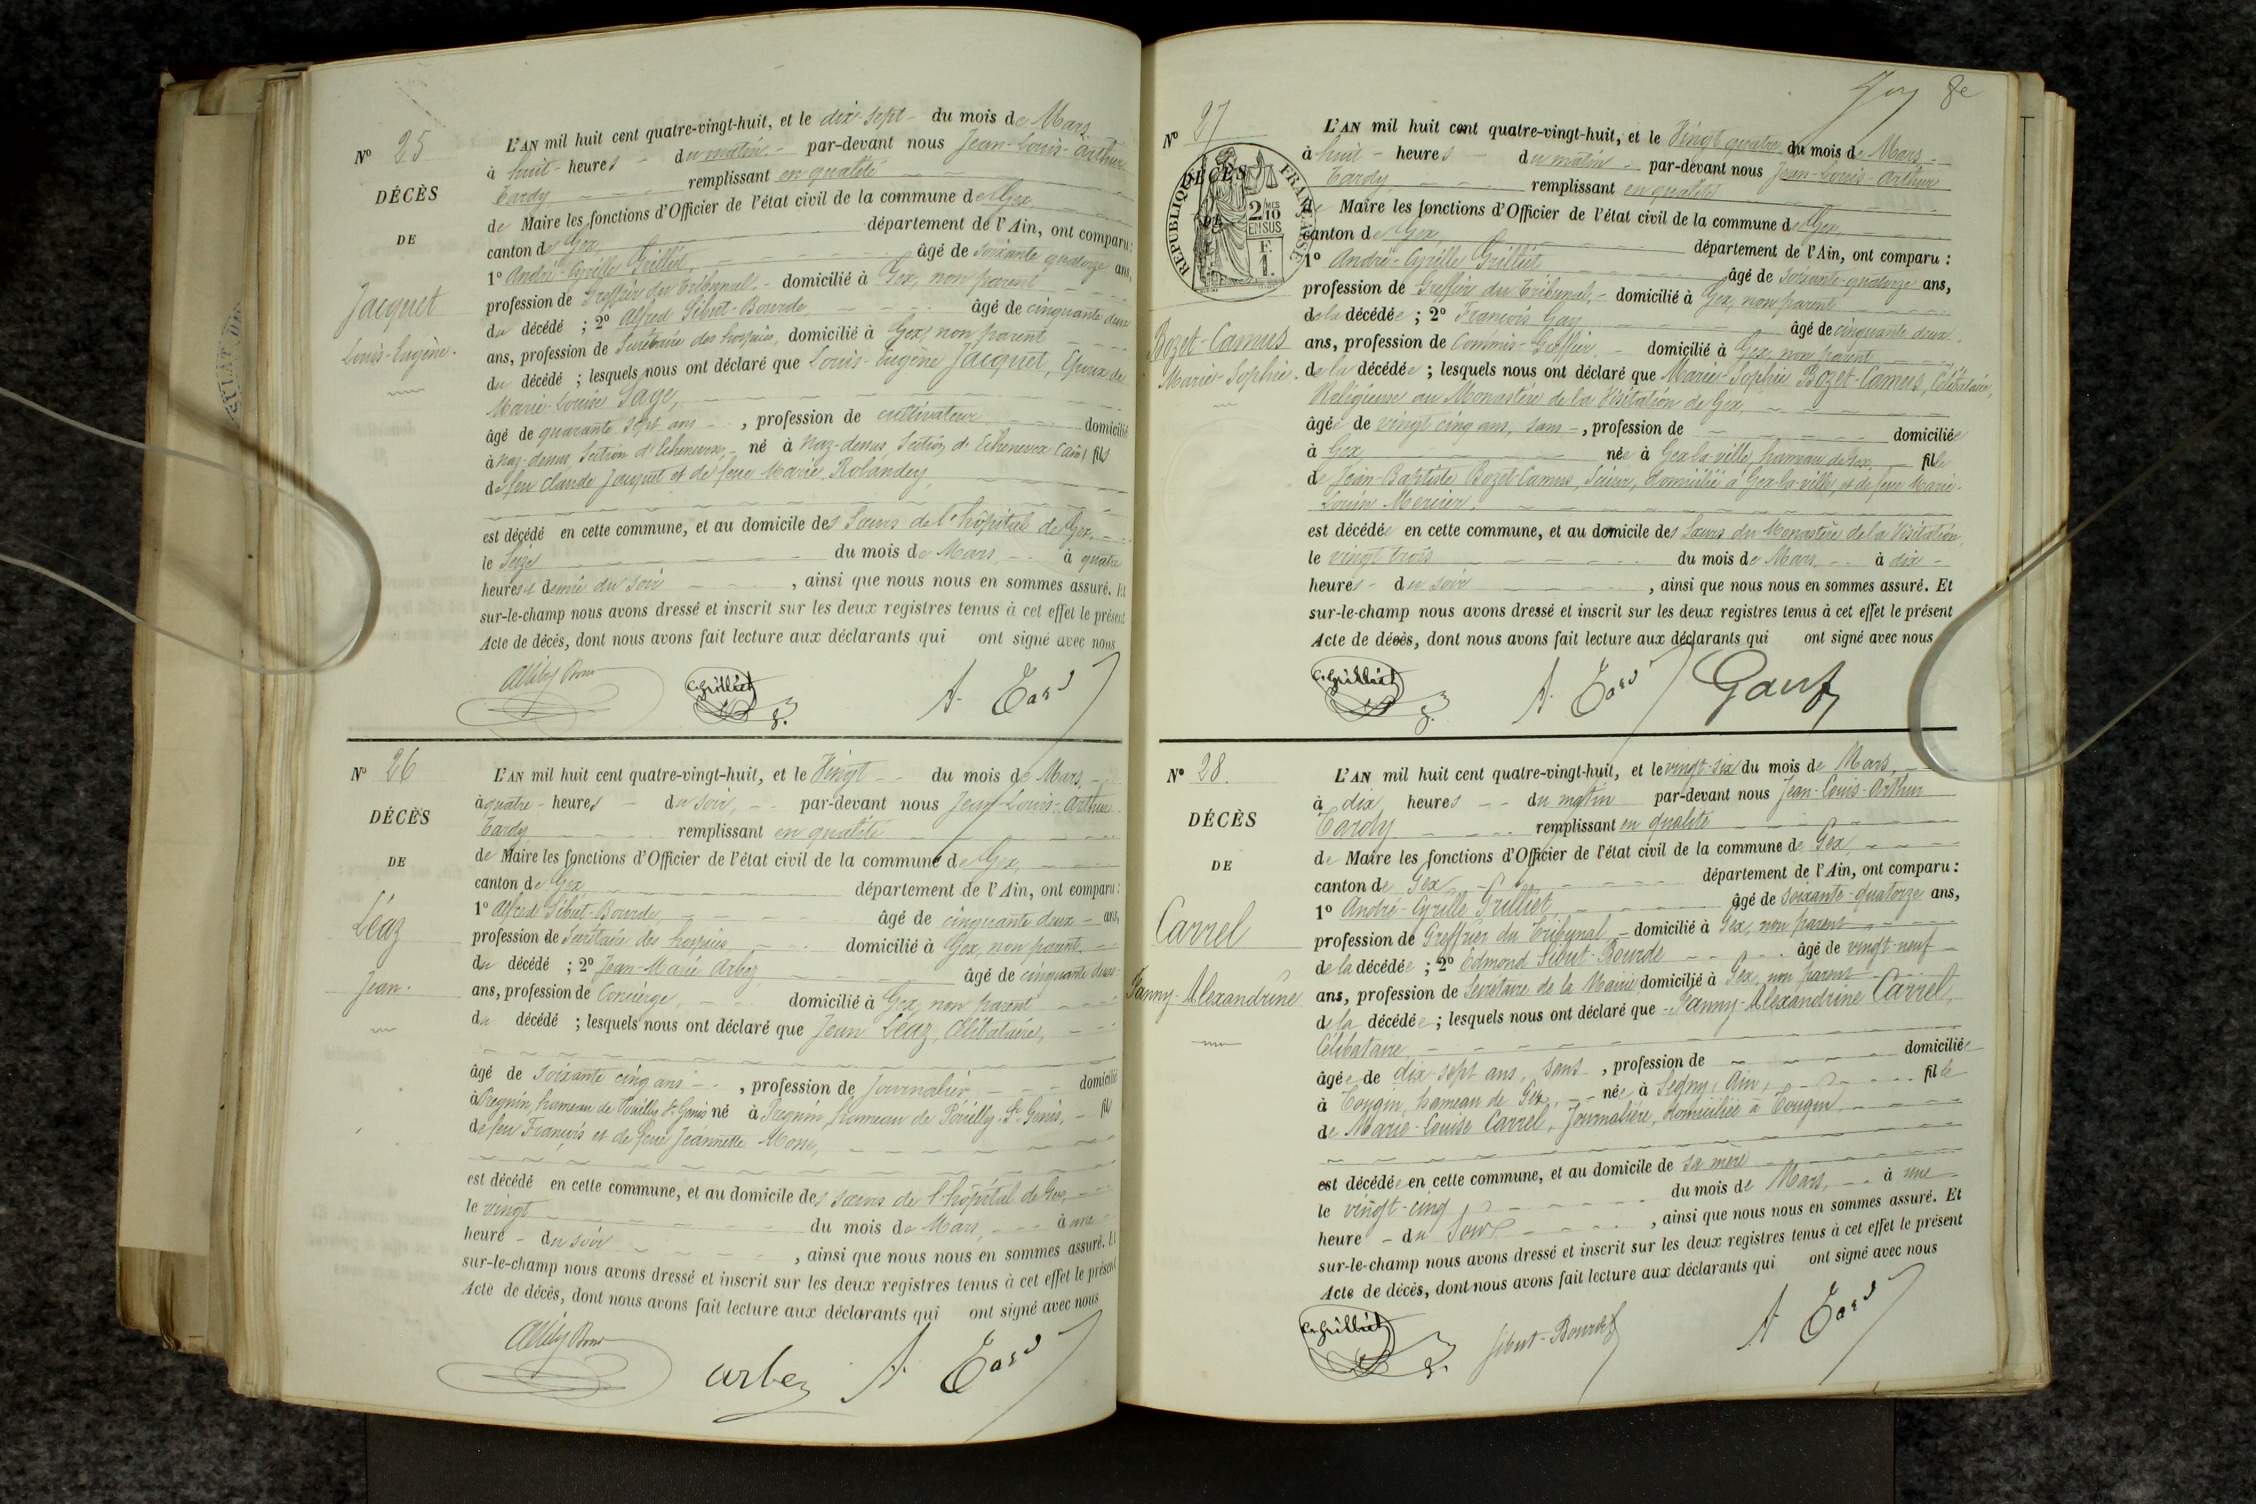 Nº 25
DÉCÈS
DE
Jacquet
Louis-Eugène.
L'AN mil huit cent quatre-vingt-huit, et le dix-sept du mois de Mars
à huit heures du matin par-devant nous Jean-Louis-Arthur
Tardy remplissant en qualité
de Maire les fonctions d'Officier de l'état civil de la commune de Gex,
canton de Gex département de l'Ain, ont comparu :
1º André-Cyrille Grilliet, âgé de soixante quatorze ans,
profession de Greffier du Tribunal, domicilié à Gex, non parent
du décédé ; 2º Alfred Sibut-Bourde, âgé de cinquante deux
ans, profession de Secrétaire des hospices, domicilié à Gex, non parent
du décédé ; lesquels nous ont déclaré que Louis-Eugène Jacquet, Epoux de
Marie-Louise Sage,
âgé de quarante sept ans, profession de cultivateur domicilié
à Naz-dessus, Section d'Echenevex, né à Naz-dessus, Section d'Echenevex (Ain) fils
de feu Claude Jacquet et de feue Marie Rolandey,
est décédé en cette commune, et au domicile des Sœurs de l'hôpital de Gex,
le Seize du mois de Mars, à quatre
heures et demie du soir, ainsi que nous nous en sommes assuré. Et
sur-le-champ nous avons dressé et inscrit sur les deux registres tenus à cet effet le présent
Acte de décès, dont nous avons fait lecture aux déclarants qui ont signé avec nous
C. Grilliet A. Tardy
Nº 26
DÉCÈS
DE
Léaz
Jean.
L'AN mil huit cent quatre-vingt-huit, et le Vingt du mois de Mars,
à quatre heures du soir, par-devant nous Jean-Louis-Arthur
Tardy remplissant en qualité
de Maire les fonctions d'Officier de l'état civil de la commune de Gex,
canton de Gex département de l'Ain, ont comparu :
1º Alfred Sibut-Bourde, âgé de cinquante deux ans,
profession de Secrétaire des hospices domicilié à Gex, non parent
du décédé ; 2º Jean-Marie Arbez âgé de cinquante deux
ans, profession de Concierge, domicilié à Gex, non parent
du décédé ; lesquels nous ont déclaré que Jean Léaz, Célibataire,
âgé de soixante cinq ans, profession de Journalier, domicilié
à Pregnin, hameau de Pouilly St Genis né à Pregnin hameau de Pouilly-St-Genis, fils
de feu François et de feue Jeannette
est décédé en cette commune, et au domicile des sœurs de l'hôpital de Gex,
le vingt du mois de Mars, à une
heure du soir, ainsi que nous nous en sommes assuré. Et
sur-le-champ nous avons dressé et inscrit sur les deux registres tenus à cet effet le présent
Acte de décès, dont nous avons fait lecture aux déclarants qui ont signé avec nous
arbez A. Tardy
8e
Nº 27
DÉCÈS
DE
RÉPUBLIQUE FRANÇAISE
2/10 MES
EN SUS
F.
1.
Bozet-Camus
Marie-Sophie.
L'AN mil huit cent quatre-vingt-huit, et le Vingt quatre du mois de Mars
à huit heures du matin par-devant nous Jean-Louis-Arthur
Tardy, remplissant en qualité
de Maire les fonctions d'Officier de l'état civil de la commune de Gex,
canton de Gex, département de l'Ain, ont comparu :
1º André-Cyrille Grilliet âgé de soixante-quatorze ans,
profession de Greffier du Tribunal, domicilié à Gex, non parent
de la décédée ; 2º François Gay âgé de cinquante deux
ans, profession de Commis-Greffier domicilié à Gex, non parent
de la décédée ; lesquels nous ont déclaré que Marie-Sophie Bozet-Camus, Célibataire,
Religieuse au Monastère de la Visitation de Gex,
âgée de vingt cinq ans, sans, profession de domiciliée
à Gex née à Gex-la-ville, hameau de Gex, fille
de Jean-Baptiste Bozet-Camus, domicilié à Gex-la-ville, et de feue Marie-
Louise Mercier.
est décédée en cette commune, et au domicile des Sœurs du Monastère de la Visitation,
le vingt trois du mois de Mars, à dix
heures du soir, ainsi que nous nous en sommes assuré. Et
sur-le-champ nous avons dressé et inscrit sur les deux registres tenus à cet effet le présent
Acte de décès, dont nous avons fait lecture aux déclarants qui ont signé avec nous
C. Grilliet A. Tardy Gay f
Nº 28.
DÉCÈS
DE
Carrel
Fanny-Alexandrine
L'AN mil huit cent quatre-vingt-huit, et le vingt-six du mois de Mars,
à dix heures du matin par-devant nous Jean-Louis-Arthur
Tardy remplissant en qualité
de Maire les fonctions d'Officier de l'état civil de la commune de Gex,
canton de Gex département de l'Ain, ont comparu :
1º André-Cyrille Grilliet âgé de soixante-quatorze ans,
profession de Greffier du Tribunal domicilié à Gex, non parent
de la décédée ; 2º Edmond Sibut-Bourde âgé de vingt-neuf
ans, profession de Secrétaire de la Mairie domicilié à Gex, non parent
de la décédée ; lesquels nous ont déclaré que Fanny-Alexandrine Carrel,
Célibataire,
âgée de dix sept ans, sans, profession de domiciliée
à Tougin, hameau de Gex, née à Ségny, Ain, fille
de Marie-Louise Carrel, Journalière, domiciliée à Tougin,
est décédée en cette commune, et au domicile de sa mère
le vingt-cinq du mois de Mars, à une
heure du Soir, ainsi que nous nous en sommes assuré. Et
sur-le-champ nous avons dressé et inscrit sur les deux registres tenus à cet effet le présent
Acte de décès, dont nous avons fait lecture aux déclarants qui ont signé avec nous
C. Grilliet Sibut-Bourde A. Tardy